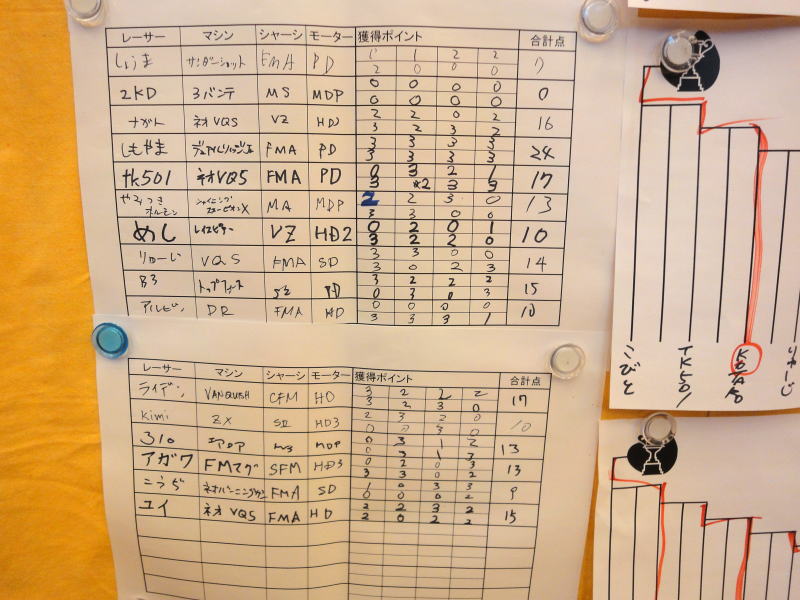 レーサー マシン シャーシ モーター 獲得ポイント 合計点
しょうま サンダーショット FMA PD 0 1 2 2 7
2 0 0 0
2KD 3バンテ MS MDP 0 0 0 0 0
0 0 0 0
ナガト ネオVQS VZ HD3 2 2 0 2 16
3 2 3 2
しもやま FMA PD 3 3 3 3 24
3 3 3 3
tk501 ネオVQS FMA PD 0 3 2 1 17
3 *2 3 3
MA MDP 2 2 3 0 13
3 3 0 0
めし VZ HD2 0 2 0 1 10
3 2 2 0
りゅーじ VQS FMA SD 3 3 0 0 14
3 0 2 3
83 PD 3 2 2 2 15
0 3 0 3
アルビン DR FMA HD 0 0 0 0 10
3 3 3 1
レーサー マシン シャーシ モーター 獲得ポイント 合計点
ライデン VANQUISH CFM HD 3 2 2 2 17
3 2 3 0
kimi ZX SII HD3 2 3 2 0 10
0 0 3 0
310 エアロア MDP 0 3 1 2 13
0 3 1 3
アガワ FMマグ SFM HD3 0 2 0 3 13
3 3 0 2
こうじ FMA SD 1 0 3 3 9
0 0 0 2
ユイ ネオVQS FMA HD 2 2 3 2 15
2 0 2 2
こびと
TK501
KOTAKO
りゅーじ